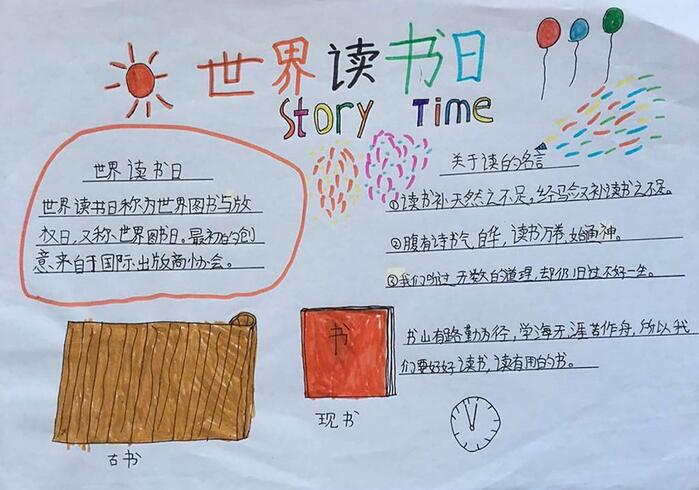 世界读书日
Story Time
世界读书日
世界读书日称为世界图书与放
权日,又称、世界图书日。最初的创
意来自于国际出版商协会。
关于读的名言
①读书补天然之不足,经验又补读书之不足。
②腹有诗书气自华,读书万卷始通神。
③我们听过无数的道理,却仍旧过不好一生。
书山有路勤为径,学海无涯苦作舟,所以我
们要好好读书,读有用的书。
书
现书
古书